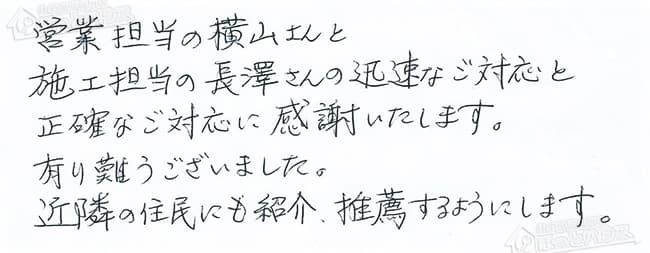 営業担当の横山さんと
施工担当の長澤さんの迅速なご対応と
正確なご対応に感謝いたします。
有り難うございました。
近隣の住民にも紹介、推薦するようにします。